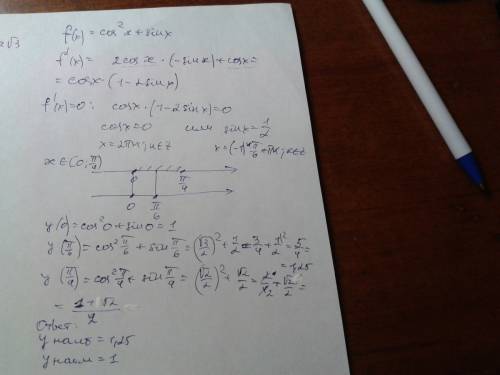 2√3
f(x) = cos²x + sinx
f'(x) = 2cosx · (-sinx) + cosx =
= cosx · (1 - 2sinx)
f'(x)=0: cosx · (1 - 2sinx) = 0
cosx = 0 или sinx = 1/2
x = 2πk; k∈Z x = (-1)^k π/6 + πk; k∈Z
x ∈ [0; π/4]
0 π/4
0 π/6
y(0) = cos²0 + sin0 = 1
y(π/6) = cos² π/6 + sin π/6 = (√3/2)² + 1/2 = 3/4 + 1/2 = 5/4 =
= 1,25
y(π/4) = cos² π/4 + sin π/4 = (√2/2)² + √2/2 = 2/4 + √2/2 =
= (1+√2)/2
Ответ:
y наиб = 1,25
y наим = 1